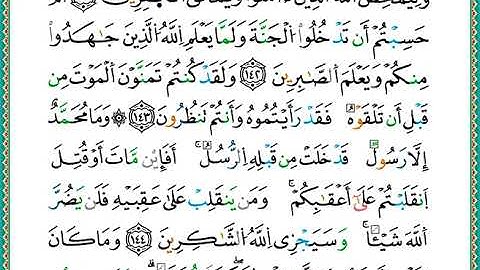 حَسِبْتُمْ أَن تَدْخُلُوا۟ ٱلْجَنَّةَ وَلَمَّا يَعْلَمِ ٱللَّهُ ٱلَّذِينَ جَٰهَدُوا۟
مِنكُمْ وَيَعْلَمَ ٱلصَّٰبِرِينَ ١٤٢ وَلَقَدْ كُنتُمْ تَمَنَّوْنَ ٱلْمَوْتَ مِن
قَبْلِ أَن تَلْقَوْهُ فَقَدْ رَأَيْتُمُوهُ وَأَنتُمْ تَنظُرُونَ ١٤٣ ۞ وَمَا مُحَمَّدٌ
إِلَّا رَسُولٌ قَدْ خَلَتْ مِن قَبْلِهِ ٱلرُّسُلُ ۚ أَفَإِي۟ن مَّاتَ أَوْ قُتِلَ
ٱنقَلَبْتُمْ عَلَىٰٓ أَعْقَٰبِكُمْ ۚ وَمَن يَنقَلِبْ عَلَىٰ عَقِبَيْهِ فَلَن يَضُرَّ
ٱللَّهَ شَيْـًٔا ۗ وَسَيَجْزِى ٱللَّهُ ٱلشَّٰكِرِينَ ١٤٤ وَمَا كَانَ